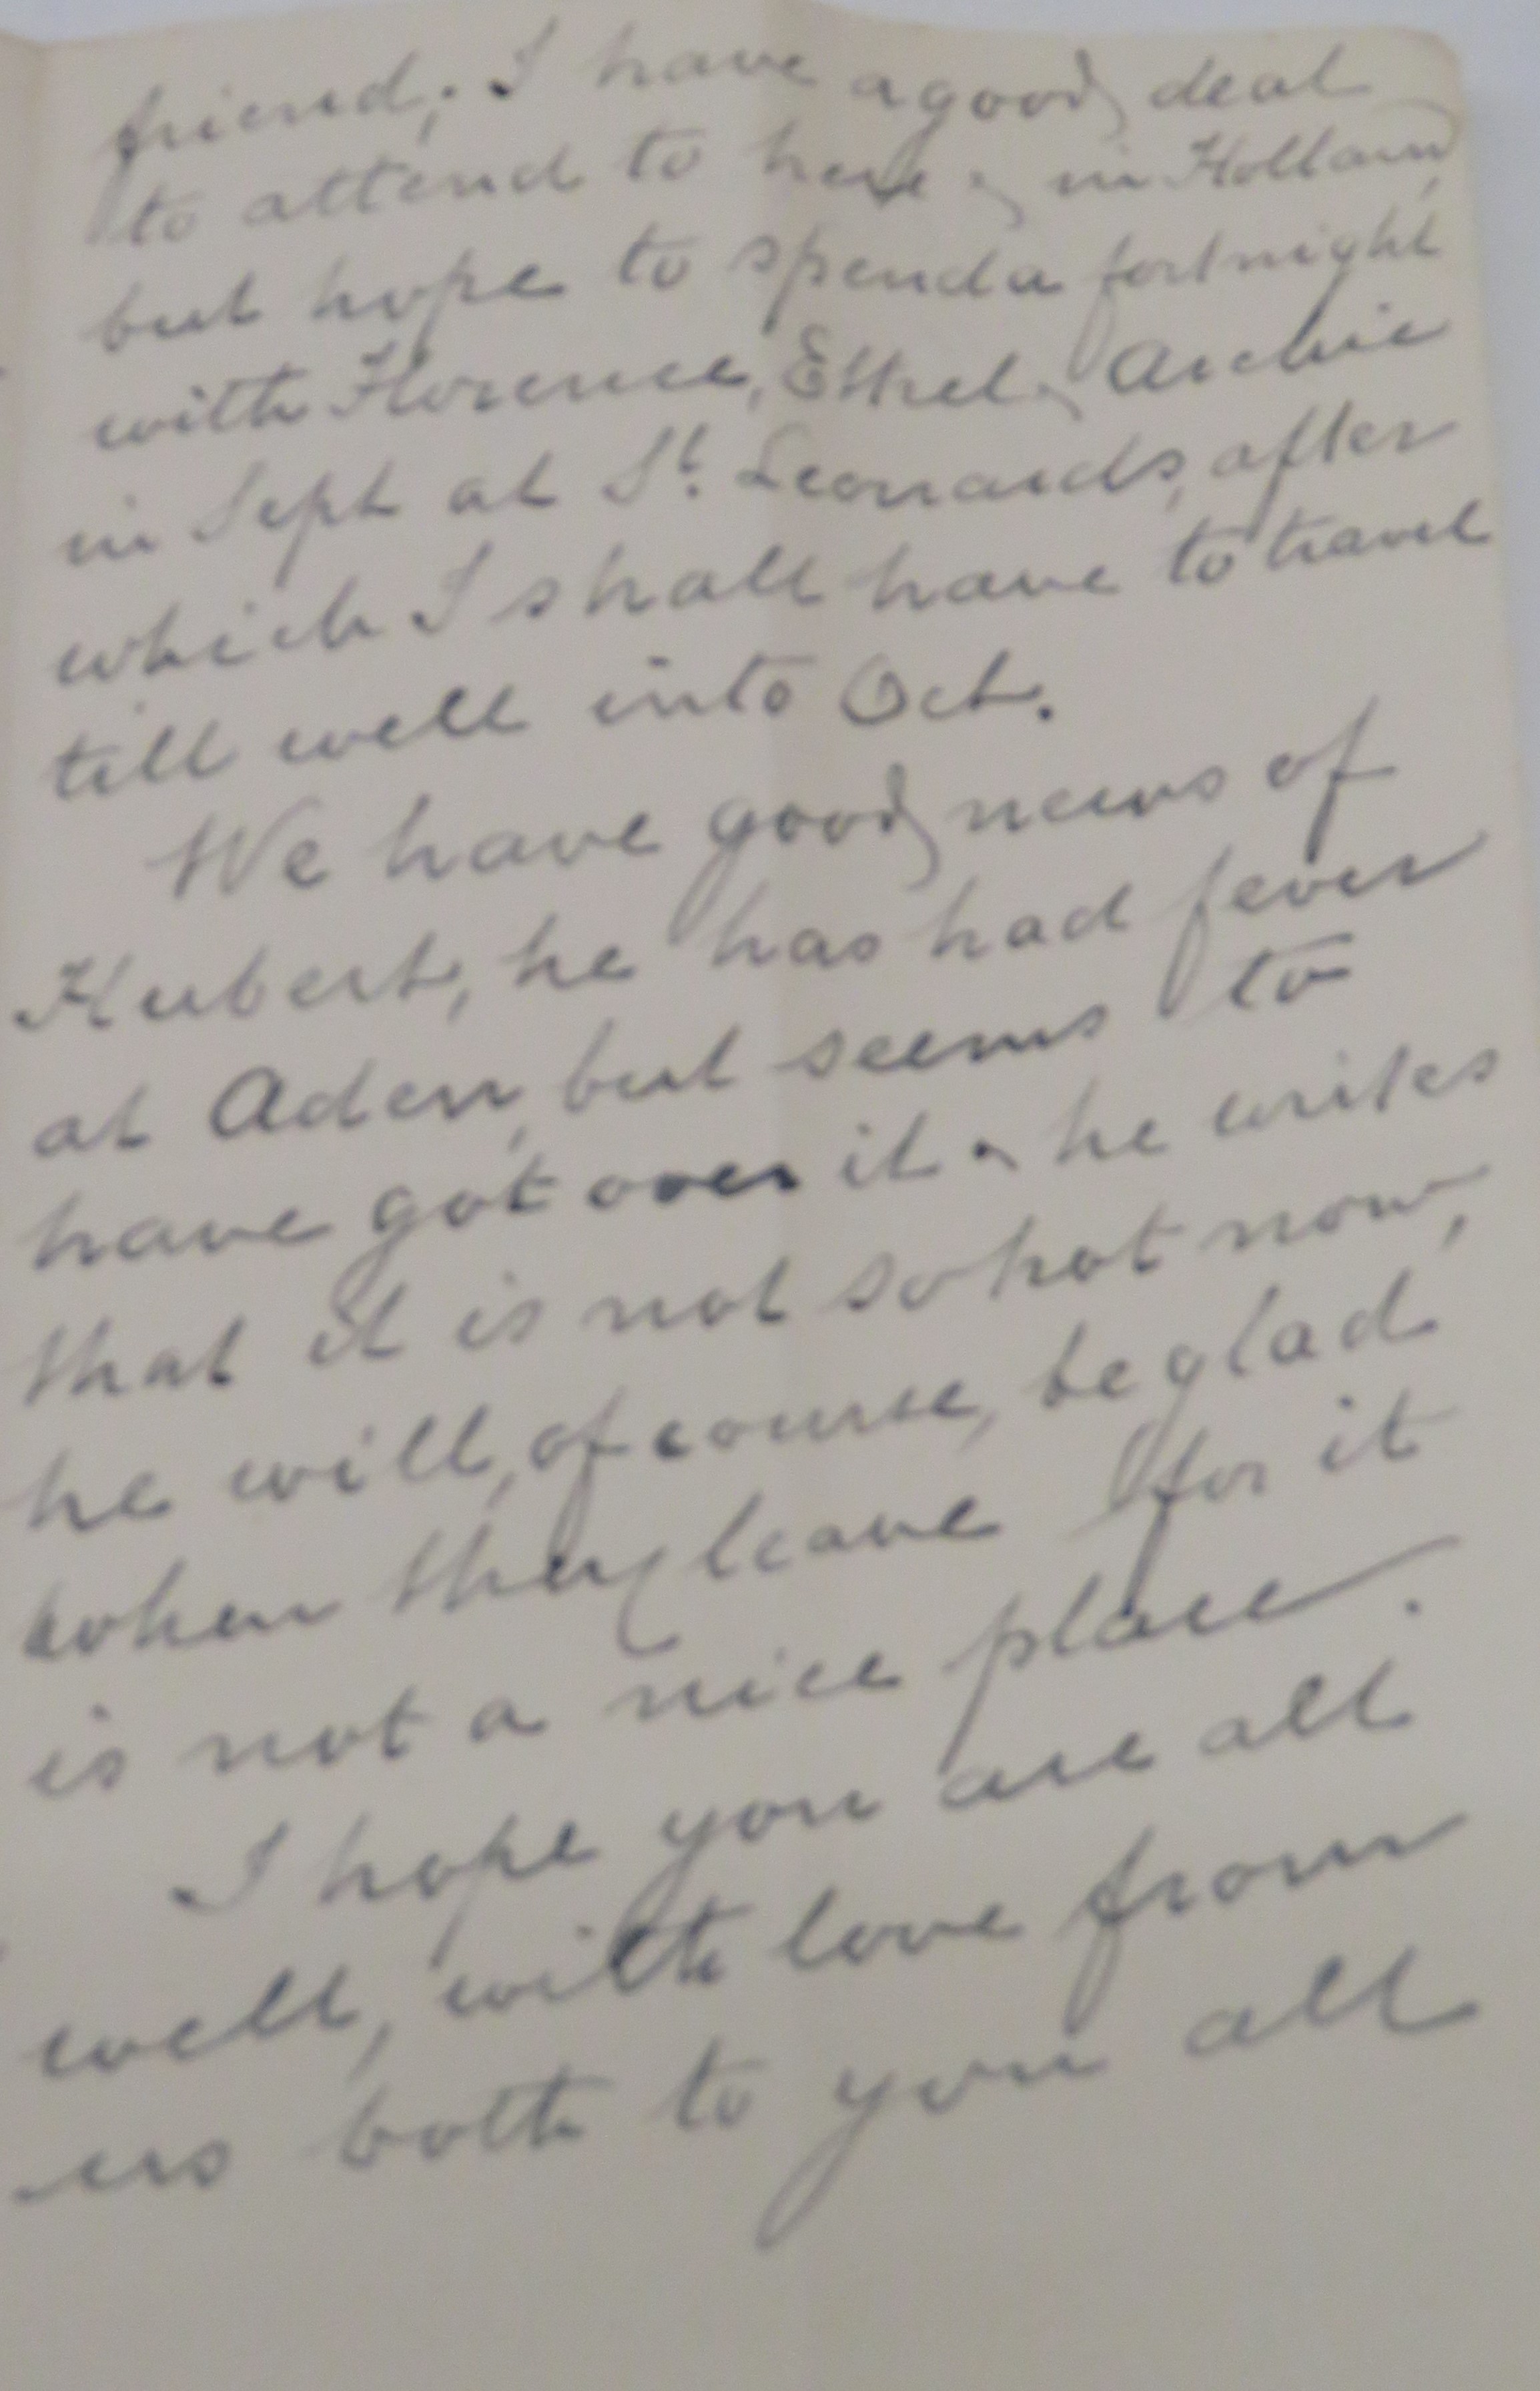 friend; I have a good deal
to attend to here & in Holland,
but hope to spend a fortnight
with Florence, Ethel & Archie
in Sept at St. Leonards, after
which I shall have to travel
till well into Oct.
We have good news of
Hubert, he has had fever
at Aden, but seems to
have got over it & he writes
that it is not so hot now,
he will, of course, be glad
when they leave for it
is not a nice place.
I hope you are all
well, with love from
us both to you all